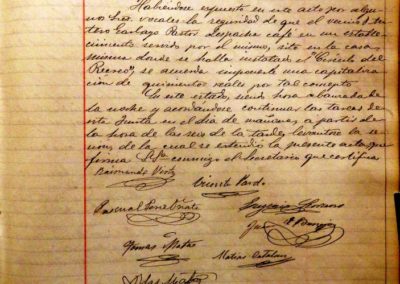 Habiéndose expuesto en este acto por algu-
nos Sres. vocales la seguridad de que el vecino
Pastor despacha café en un estable-
cimiento servido por el mismo, sito en la casa
misma donde se halla instalado el "Círculo del
Recreo", se acuerda imponerle una capitaliza-
ción de quinientos reales por tal concepto.
En este estado, siendo hora avanzada de
la noche y acordándose continuar las tareas de
esta Junta en el día de mañana, a partir de
la hora de las seis de la tarde, levantose la se-
sión, de la cual se extendió la presente acta que
firma conmigo el Secretario que certifico
Raimundo
Vicente Pardo
Pascual
Tomas Mateo
Matias Catalan